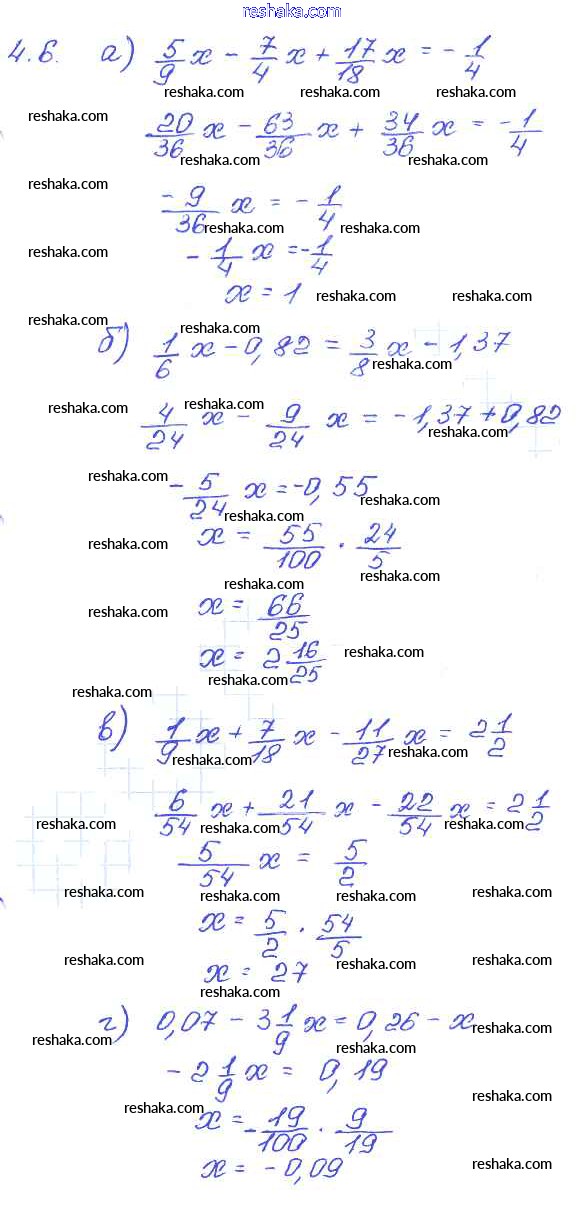 reshaka.com
4.6. а) 5/9 x - 7/4 x + 17/18 x = - 1/4
reshaka.com reshaka.com reshaka.com
reshaka.com
20/36 x - 63/36 x + 34/36 x = - 1/4
reshaka.com reshaka.com
reshaka.com
- 9/36 x = - 1/4
reshaka.com reshaka.com
reshaka.com
- 1/4 x = - 1/4
x = 1
reshaka.com reshaka.com
reshaka.com
reshaka.com
б) 1/6 x - 0,82 = 3/8 x - 1,37
reshaka.com
reshaka.com reshaka.com
4/24 x - 9/24 x = -1,37 + 0,82
reshaka.com
reshaka.com
- 5/24 x = -0,55
reshaka.com
reshaka.com
x = 55/100 · 24/5
reshaka.com
reshaka.com reshaka.com
reshaka.com
x = 66/25
x = 2 16/25
reshaka.com
reshaka.com
в) 1/9 x + 7/18 x - 11/27 x = 2 1/2
reshaka.com reshaka.com
6/54 x + 21/54 x - 22/54 x = 2 1/2
reshaka.com reshaka.com reshaka.com
5/54 x = 5/2
reshaka.com reshaka.com
x = 5/2 · 54/5
reshaka.com reshaka.com reshaka.com
x = 27
reshaka.com
г) 0,07 - 3 1/9 x = 0,26 - x
reshaka.com reshaka.com
- 2 1/9 x = 0,19
reshaka.com
reshaka.com
x = - 19/100 · 9/19
reshaka.com
x = -0,09
reshaka.com